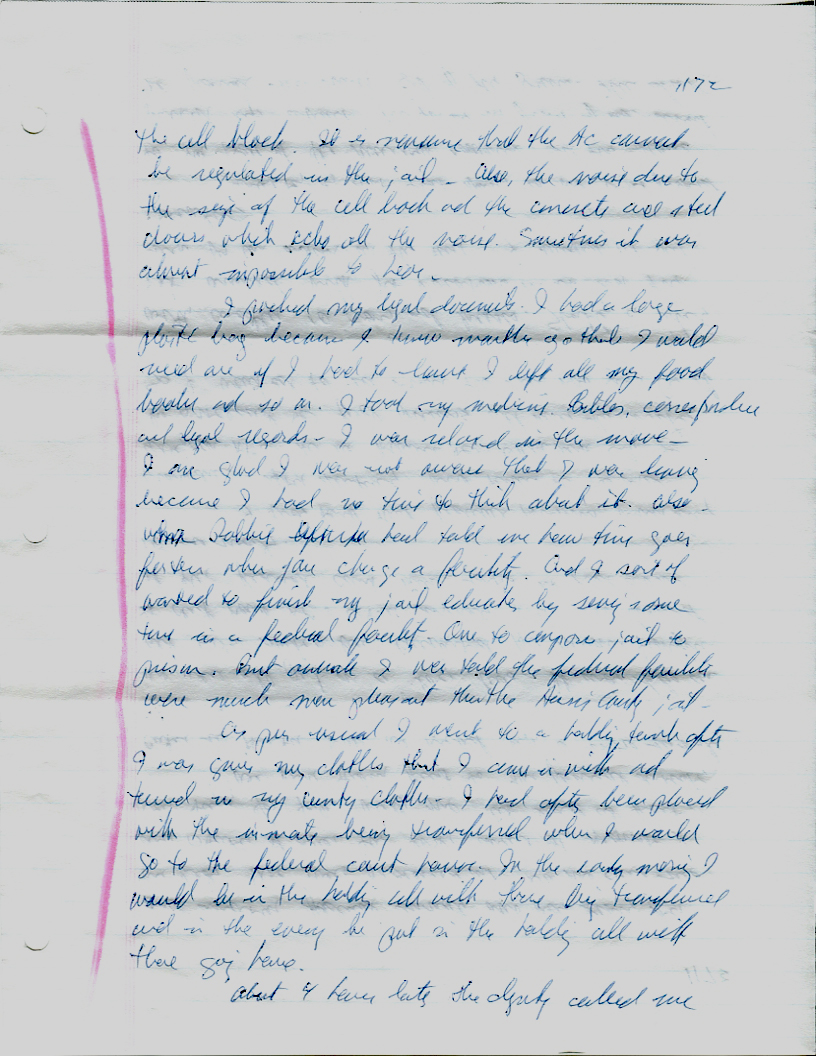 1172
the cell block. It is rumored that the AC cannot
be regulated in the jail - Also, the noise due to
the size of the cell bock ad the concrete and steel
doors which echo all the noise. Sometimes it was
almost impossible to hear.
I packed my legal documents. I had a large
plastic bag because I knew months ago that I would
need one if I had to leave I left all my food
books ad so on. I took my medicine, Bibles, correspondence
and legal regards - I was relaxed in the move -
I am glad I was not aware that I was leaving
because I had no time to think about it. Also -
Bobbie had told me how time goes
faster when you change a facility. And I sort of
wanted to finish my jail education by serving some
time in a federal facility. One to compare jail to
prison. But I was told the federal facilities
were much more pleasant than the Harris County jail -
As per usual I went to a holding tank after
I was given my clothes that I came in with ad
turned in my county clothes - I had often been placed
with the inmates being transferred when I would
go to the federal court house. In the early morning I
would be in the holding cell with those being transferred
and in the evening be put in the holding cell with
those going home.
About 4 hours later the deputy called me